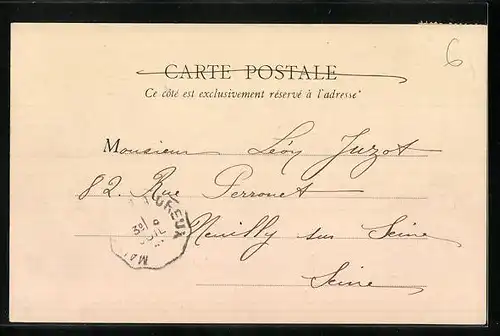 6
CARTE POSTALE
Ce côté est exclusivement réservé à l'adresse
Monsieur Léon Juzot
82. Rue Perronet
Neuilly sur Seine
Seine